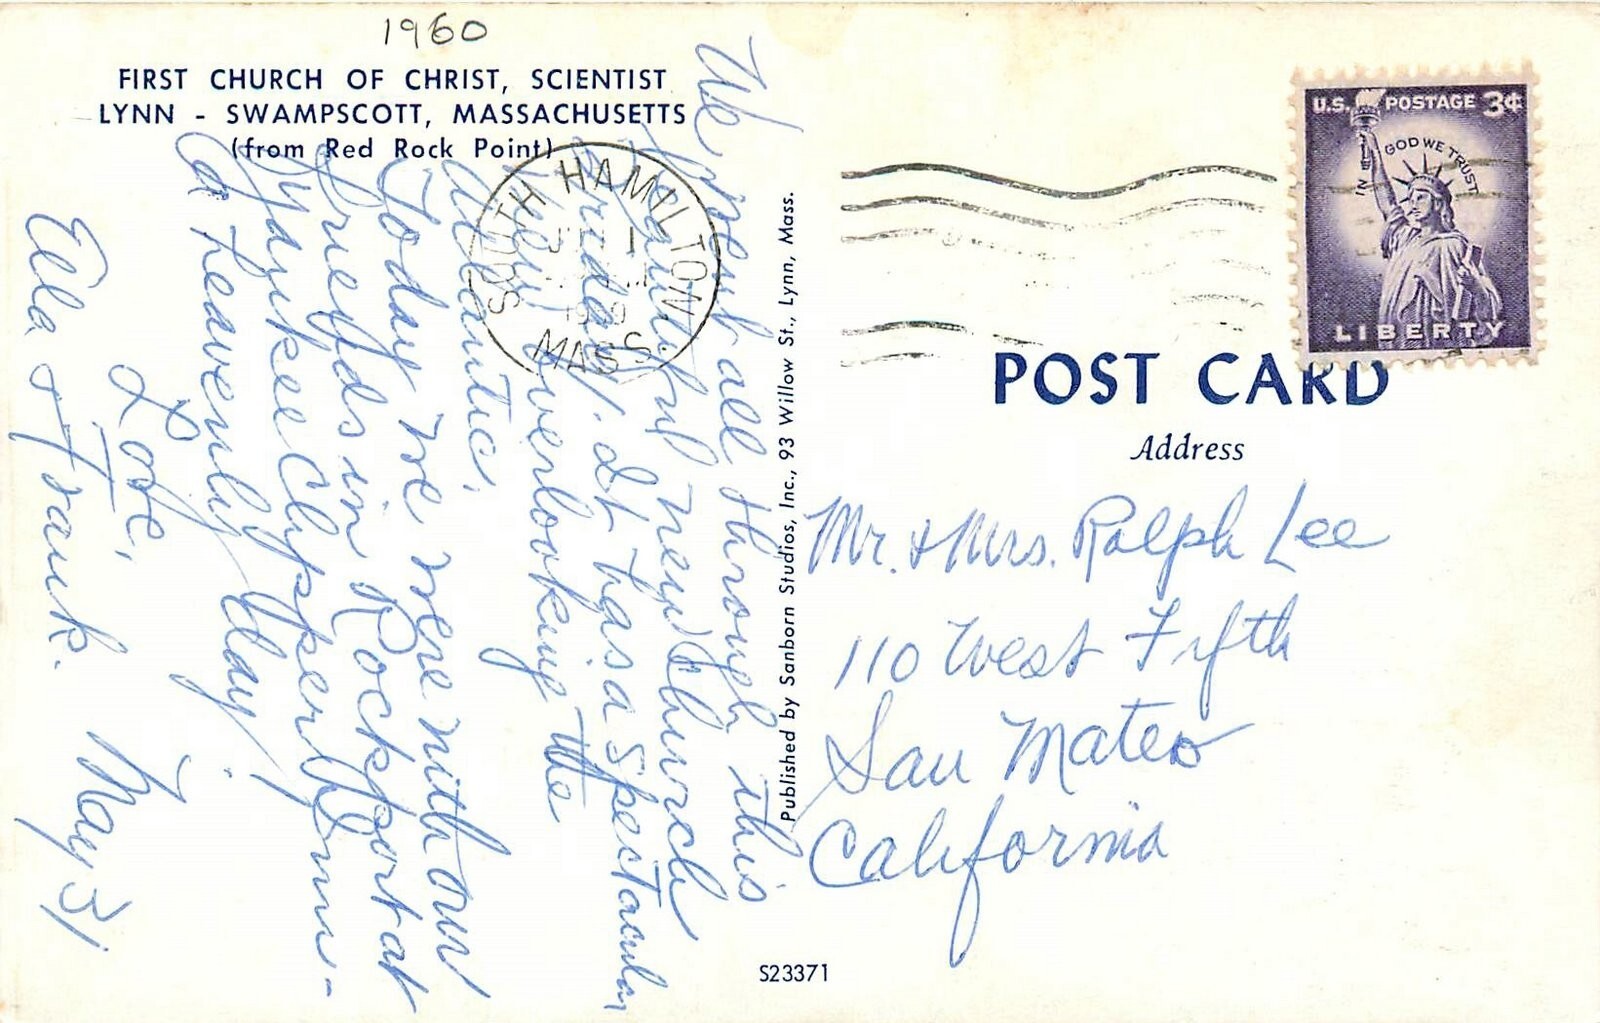 1960
FIRST CHURCH OF CHRIST, SCIENTIST
LYNN - SWAMPSCOTT, MASSACHUSETTS
(from Red Rock Point)
We went all through this
beautiful new church
Friday. It has a spectacular
view overlooking the
Atlantic.
Today we were with our
friends in Rockport at
Yankee Clipper Inn -
a heavenly day!
Love,
Ella & Frank.
May 31
SOUTH HAMILTON
MASS
Published by Sanborn Studios, Inc., 93 Willow St., Lynn, Mass.
S23371
U.S. POSTAGE 3¢
IN GOD WE TRUST
LIBERTY
POST CARD
Address
Mr. & Mrs. Ralph Lee
110 West Fifth
San Mateo
California